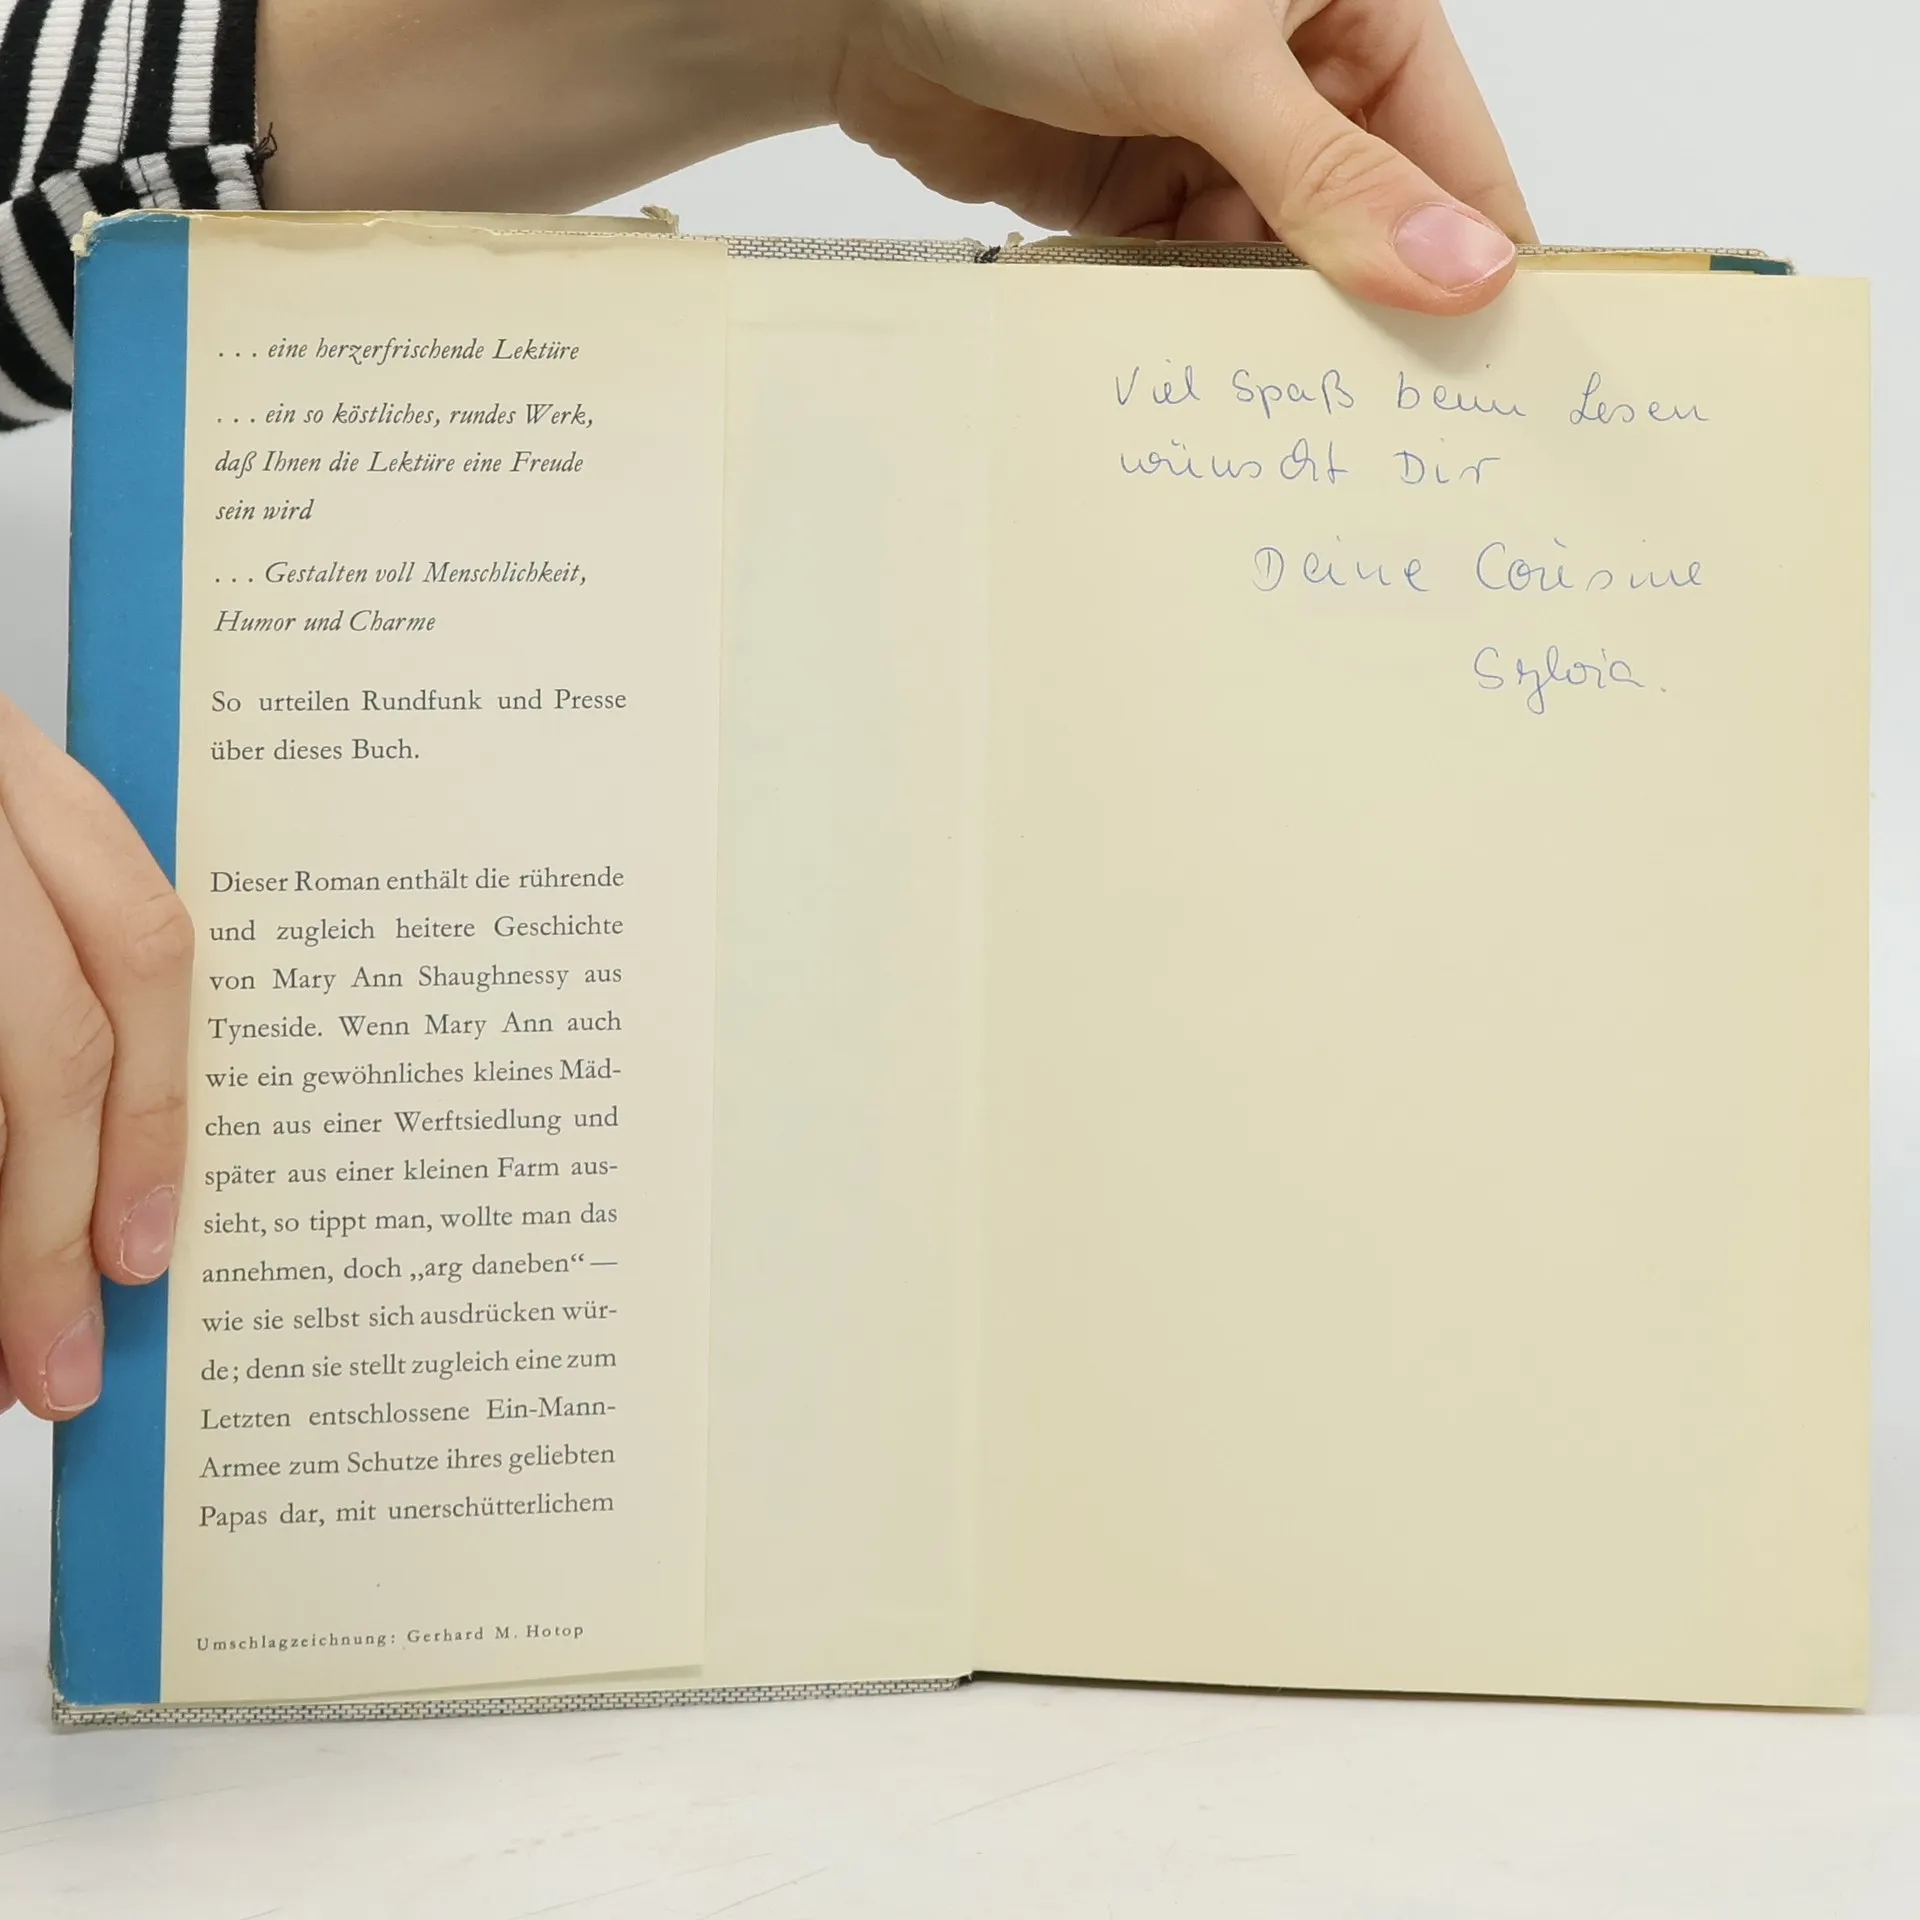 . . . eine herzerfrischende Lektüre
. . . ein so köstliches, rundes Werk,
daß Ihnen die Lektüre eine Freude
sein wird
. . . Gestalten voll Menschlichkeit,
Humor und Charme
So urteilen Rundfunk und Presse
über dieses Buch.
Dieser Roman enthält die rührende
und zugleich heitere Geschichte
von Mary Ann Shaughnessy aus
Tyneside. Wenn Mary Ann auch
wie ein gewöhnliches kleines Mäd-
chen aus einer Werftsiedlung und
später aus einer kleinen Farm aus-
sieht, so tippt man, wollte man das
annehmen, doch „arg daneben“ —
wie sie selbst sich ausdrücken wür-
de; denn sie stellt zugleich eine zum
Letzten entschlossene Ein-Mann-
Armee zum Schutze ihres geliebten
Papas dar, mit unerschütterlichem
Umschlagzeichnung: Gerhard M. Hotop
Viel Spaß beim Lesen
wünscht Dir
Deine
Sylvia.